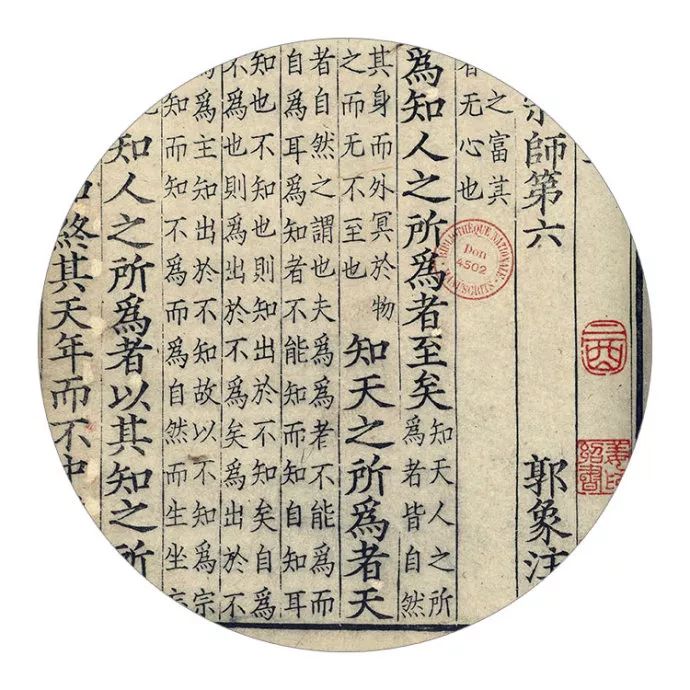 師第六 郭象注
二酉
姜印紹書
之富其
者无心也
BIBLIOTHÈQUE NATIONALE
Don
4502
MANUSCRITS
爲知人之所爲者至矣
知天人之所
爲者皆自然
其身而外冥於物
之而无不至也
知天之所爲者天
者自然之謂也夫爲爲者不能爲而
自爲耳爲知者不能知而知自知耳
知也不知也則知出於不知矣自爲
不爲也則爲出於不爲矣爲出於不
爲主知出於不知故以不知爲宗
知而知不爲而爲自然而生坐忘
知人之所爲者以其知之所
終其天年而不中